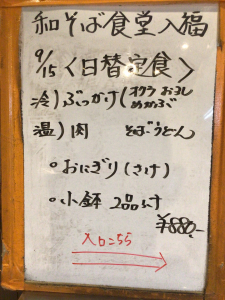 和そば食堂入福
9/15〈日替定食〉
冷)ぶっかけ(オクラ おろし
めかぶ
温)肉 そばうどん
・おにぎり(さけ)
・小鉢 2品付
¥880,-
入口こちら